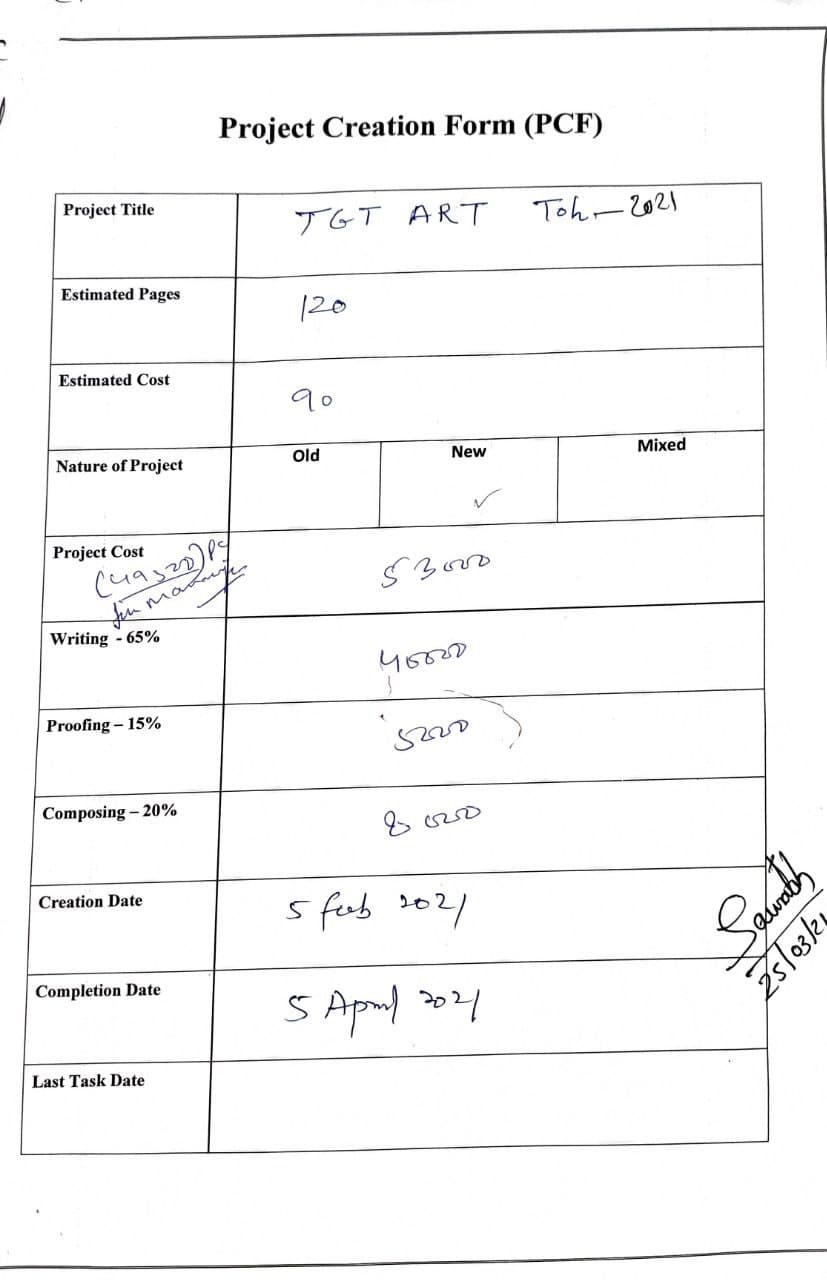 Project Creation Form (PCF)
Project Title TGT ART Toh - 2021
Estimated Pages 120
Estimated Cost 90
Nature of Project Old New ✓ Mixed
Project Cost 53000
(49500)
Writing - 65% 40000
Proofing – 15% 5000
Composing – 20% 8000
Creation Date 5 feb 2021
Completion Date 5 April 2021
Sawrabh
25/03/21
Last Task Date